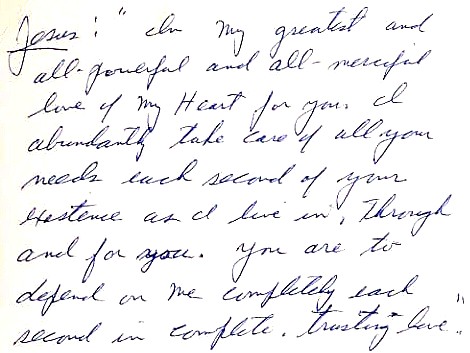 Jesus: "In my greatest and
all-powerful and all-merciful
love of my Heart for you, I
abundantly take care of all your
needs each second of your
existence as I live in, through
and for you. You are to
depend on me completely each
second in complete, trusting love."